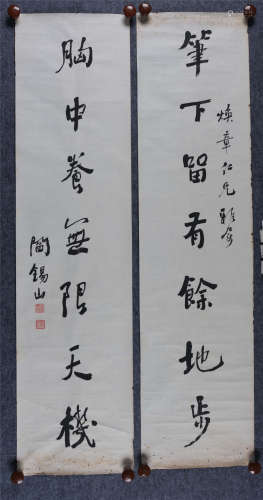 筆下留有餘地步
煥章仁兄雅屬
胸中養無限天機
閻錫山